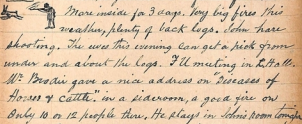 Mare inside for 3 days. Very big fires this
weather, plenty of back logs. John hare
shooting. The ewes this evening can get a pick from
under and about the logs. I'll meeting in
Mr. Brodie gave a nice address on "Diseases of
Horses & Cattle." in a sideroom, a good fire on
Only 10 or 12 people there. He stays in John's room tonight